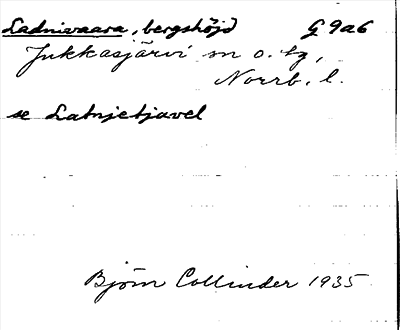 Ladnivaara, bergshöjd G 9a6
Jukkasjärvi sn o. tg,
Norrb. l.
se Latnjetjavel
Björn Collinder 1935